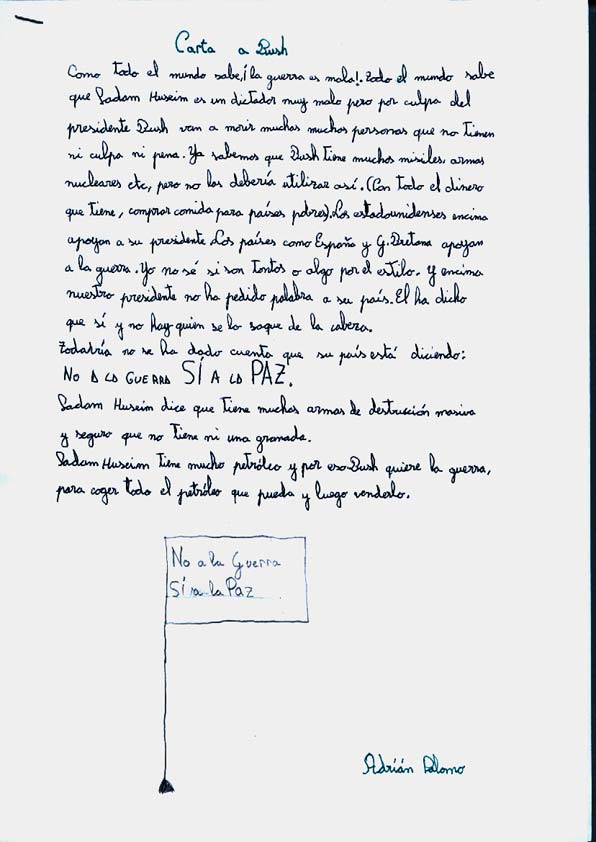 Carta a Bush
Como todo el mundo sabe,¡la guerra es mala!. Todo el mundo sabe
que Sadam Huseim es un dictador muy malo pero por culpa del
presidente Bush van a morir muchas muchas personas que no tienen
ni culpa ni pena. Ya sabemos que Bush tiene muchos misiles, armas
nucleares etc, pero no las debería utilizar así. (Con todo el dinero
que tiene, comprar comida para países pobres). Los estadounidenses encima
apoyan a su presidente. Los países como España y G. Bretana apoyan
a la guerra. Yo no sé si son tontos o algo por el estilo. Y encima
nuestro presidente no ha pedido palabra a su país. El ha dicho
que sí y no hay quien se lo saque de la cabeza.
Todabría no se ha dado cuenta que su país está diciendo:
NO A LA GUERRA SÍ A LA PAZ.
Sadam Huseim dice que tiene muchas armas de destrucción masiva
y seguro que no tiene ni una granada.
Sadam Huseim tiene mucho petróleo y por eso Bush quiere la guerra,
para coger todo el petróleo que pueda y luego venderlo.
No a la Guerra
Sí a la Paz
Adrián Palomo